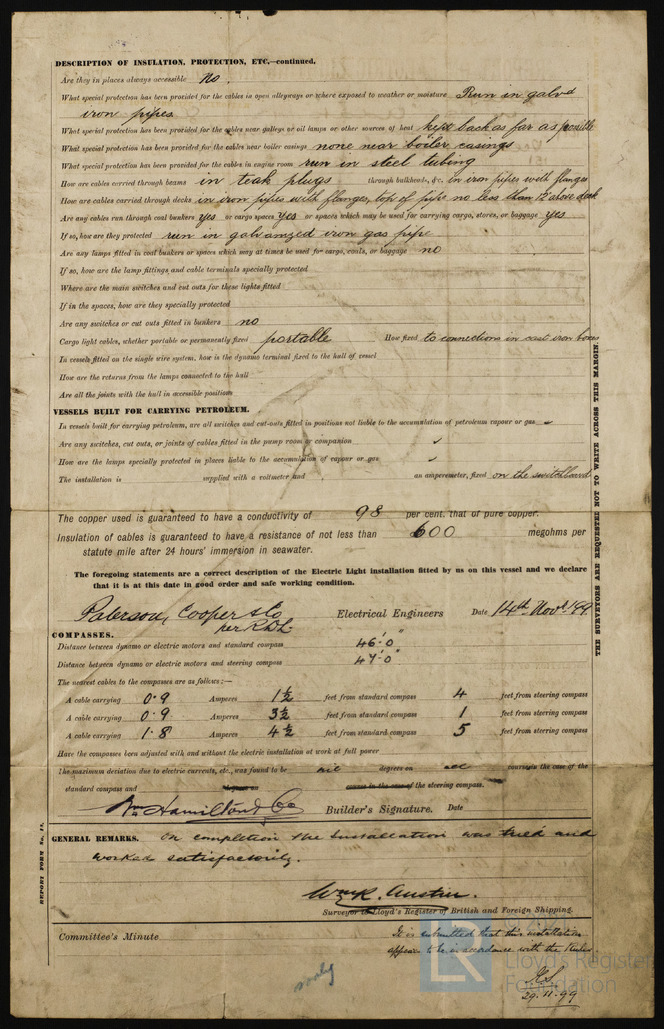 DESCRIPTION OF INSULATION, PROTECTION, ETC.—continued.
Are they in places always accessible No.
What special protection has been provided for the cables in open alleyways or where exposed to weather or moisture Run in galvd
iron pipes.
What special protection has been provided for the cables near galleys or oil lamps or other sources of heat kept back as far as possible
What special protection has been provided for the cables near boiler casings none near boiler casings
What special protection has been provided for the cables in engine room run in steel tubing
How are cables carried through beams in teak plugs through bulkheads, &c. in iron pipes with flanges
How are cables carried through decks in iron pipes with flanges, top of pipes no less than 12" above deck
Are any cables run through coal bunkers yes or cargo spaces yes or spaces which may be used for carrying cargo, stores, or baggage yes
If so, how are they protected run in galvanized iron gas pipe
Are any lamps fitted in coal bunkers or spaces which may at times be used for cargo, coals, or baggage no
If so, how are the lamp fittings and cable terminals specially protected
Where are the main switches and cut outs for these lights fitted
If in the spaces, how are they specially protected
Are any switches or cut outs fitted in bunkers no
Cargo light cables, whether portable or permanently fixed portable How fixed to connections in cast iron boxes
In vessels fitted on the single wire system, how is the dynamo terminal fixed to the hull of vessel
How are the returns from the lamps connected to the hull
Are all the joints with the hull in accessible positions
VESSELS BUILT FOR CARRYING PETROLEUM.
In vessels built for carrying petroleum, are all switches and cut-outs fitted in positions not liable to the accumulation of petroleum vapour or gas ✓
Are any switches, cut outs, or joints of cables fitted in the pump room or companion ✓
How are the lamps specially protected in places liable to the accumulation of vapour or gas ✓
The installation is supplied with a voltmeter and an amperemeter, fixed on the switchboard.
The copper used is guaranteed to have a conductivity of 98 per cent. that of pure copper.
Insulation of cables is guaranteed to have a resistance of not less than 600 megohms per
statute mile after 24 hours' immersion in seawater.
The foregoing statements are a correct description of the Electric Light installation fitted by us on this vessel and we declare
that it is at this date in good order and safe working condition.
Paterson, Cooper & Co Electrical Engineers Date 14th Novr 1899.
per
COMPASSES.
Distance between dynamo or electric motors and standard compass 46'.0"
Distance between dynamo or electric motors and steering compass 47'.0"
The nearest cables to the compasses are as follows:—
A cable carrying 0.9 Amperes 1½ feet from standard compass 4 feet from steering compass
A cable carrying 0.9 Amperes 3½ feet from standard compass 1 feet from steering compass
A cable carrying 1.8 Amperes 4½ feet from standard compass 5 feet from steering compass
Have the compasses been adjusted with and without the electric installation at work at full power
The maximum deviation due to electric currents, etc., was found to be nil degrees on all courses in the case of the
standard compass and degrees on courses in the case of the steering compass.
Wm Hamilton & Co Builder's Signature. Date
GENERAL REMARKS. On completion the Installation was tried and
worked satisfactorily.
Wm R. Austin.
Surveyor to Lloyd's Register of British and Foreign Shipping.
Committee's Minute
It is submitted that this installation
appears to be in accordance with the Rules.
29.11.99
REPORT FORM No. 14.
THE SURVEYORS ARE REQUESTED NOT TO WRITE ACROSS THIS MARGIN.
LR
Lloyd's Register
Foundation